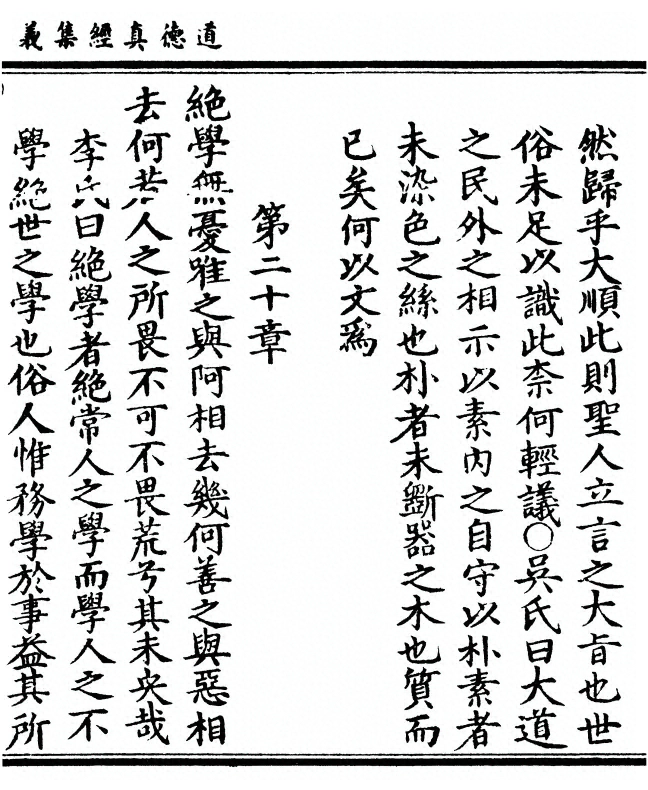 道德真經集義
然歸乎大順此則聖人立言之大旨也世
俗未足以識此柰何輕議○吳氏曰大道
之民外之相示以素內之自守以朴素者
未染色之絲也朴者未斵器之木也質而
已矣何以文爲
第二十章
絕學無憂唯之與阿相去幾何善之與惡相
去何若人之所畏不可不畏荒兮其未央哉
李氏曰絕學者絕常人之學而學人之不
學絕世之學也俗人惟務學於事益其所